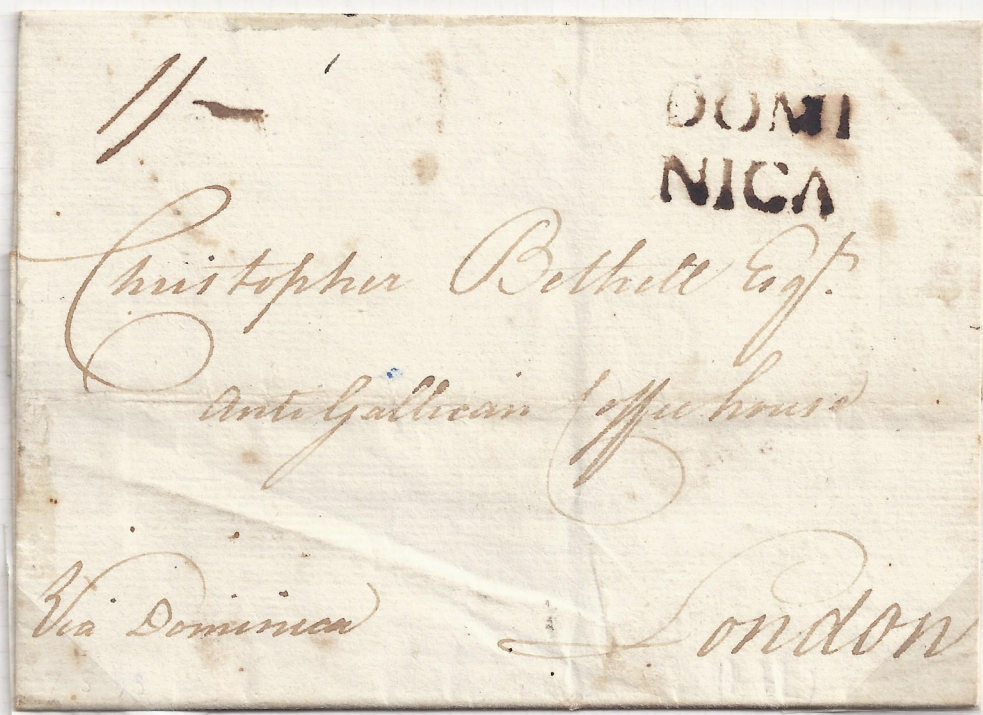 1/-
DOMI
NICA
Christopher Bethell Esqr.
Anti Gallican Coffee house
London
Via Dominica